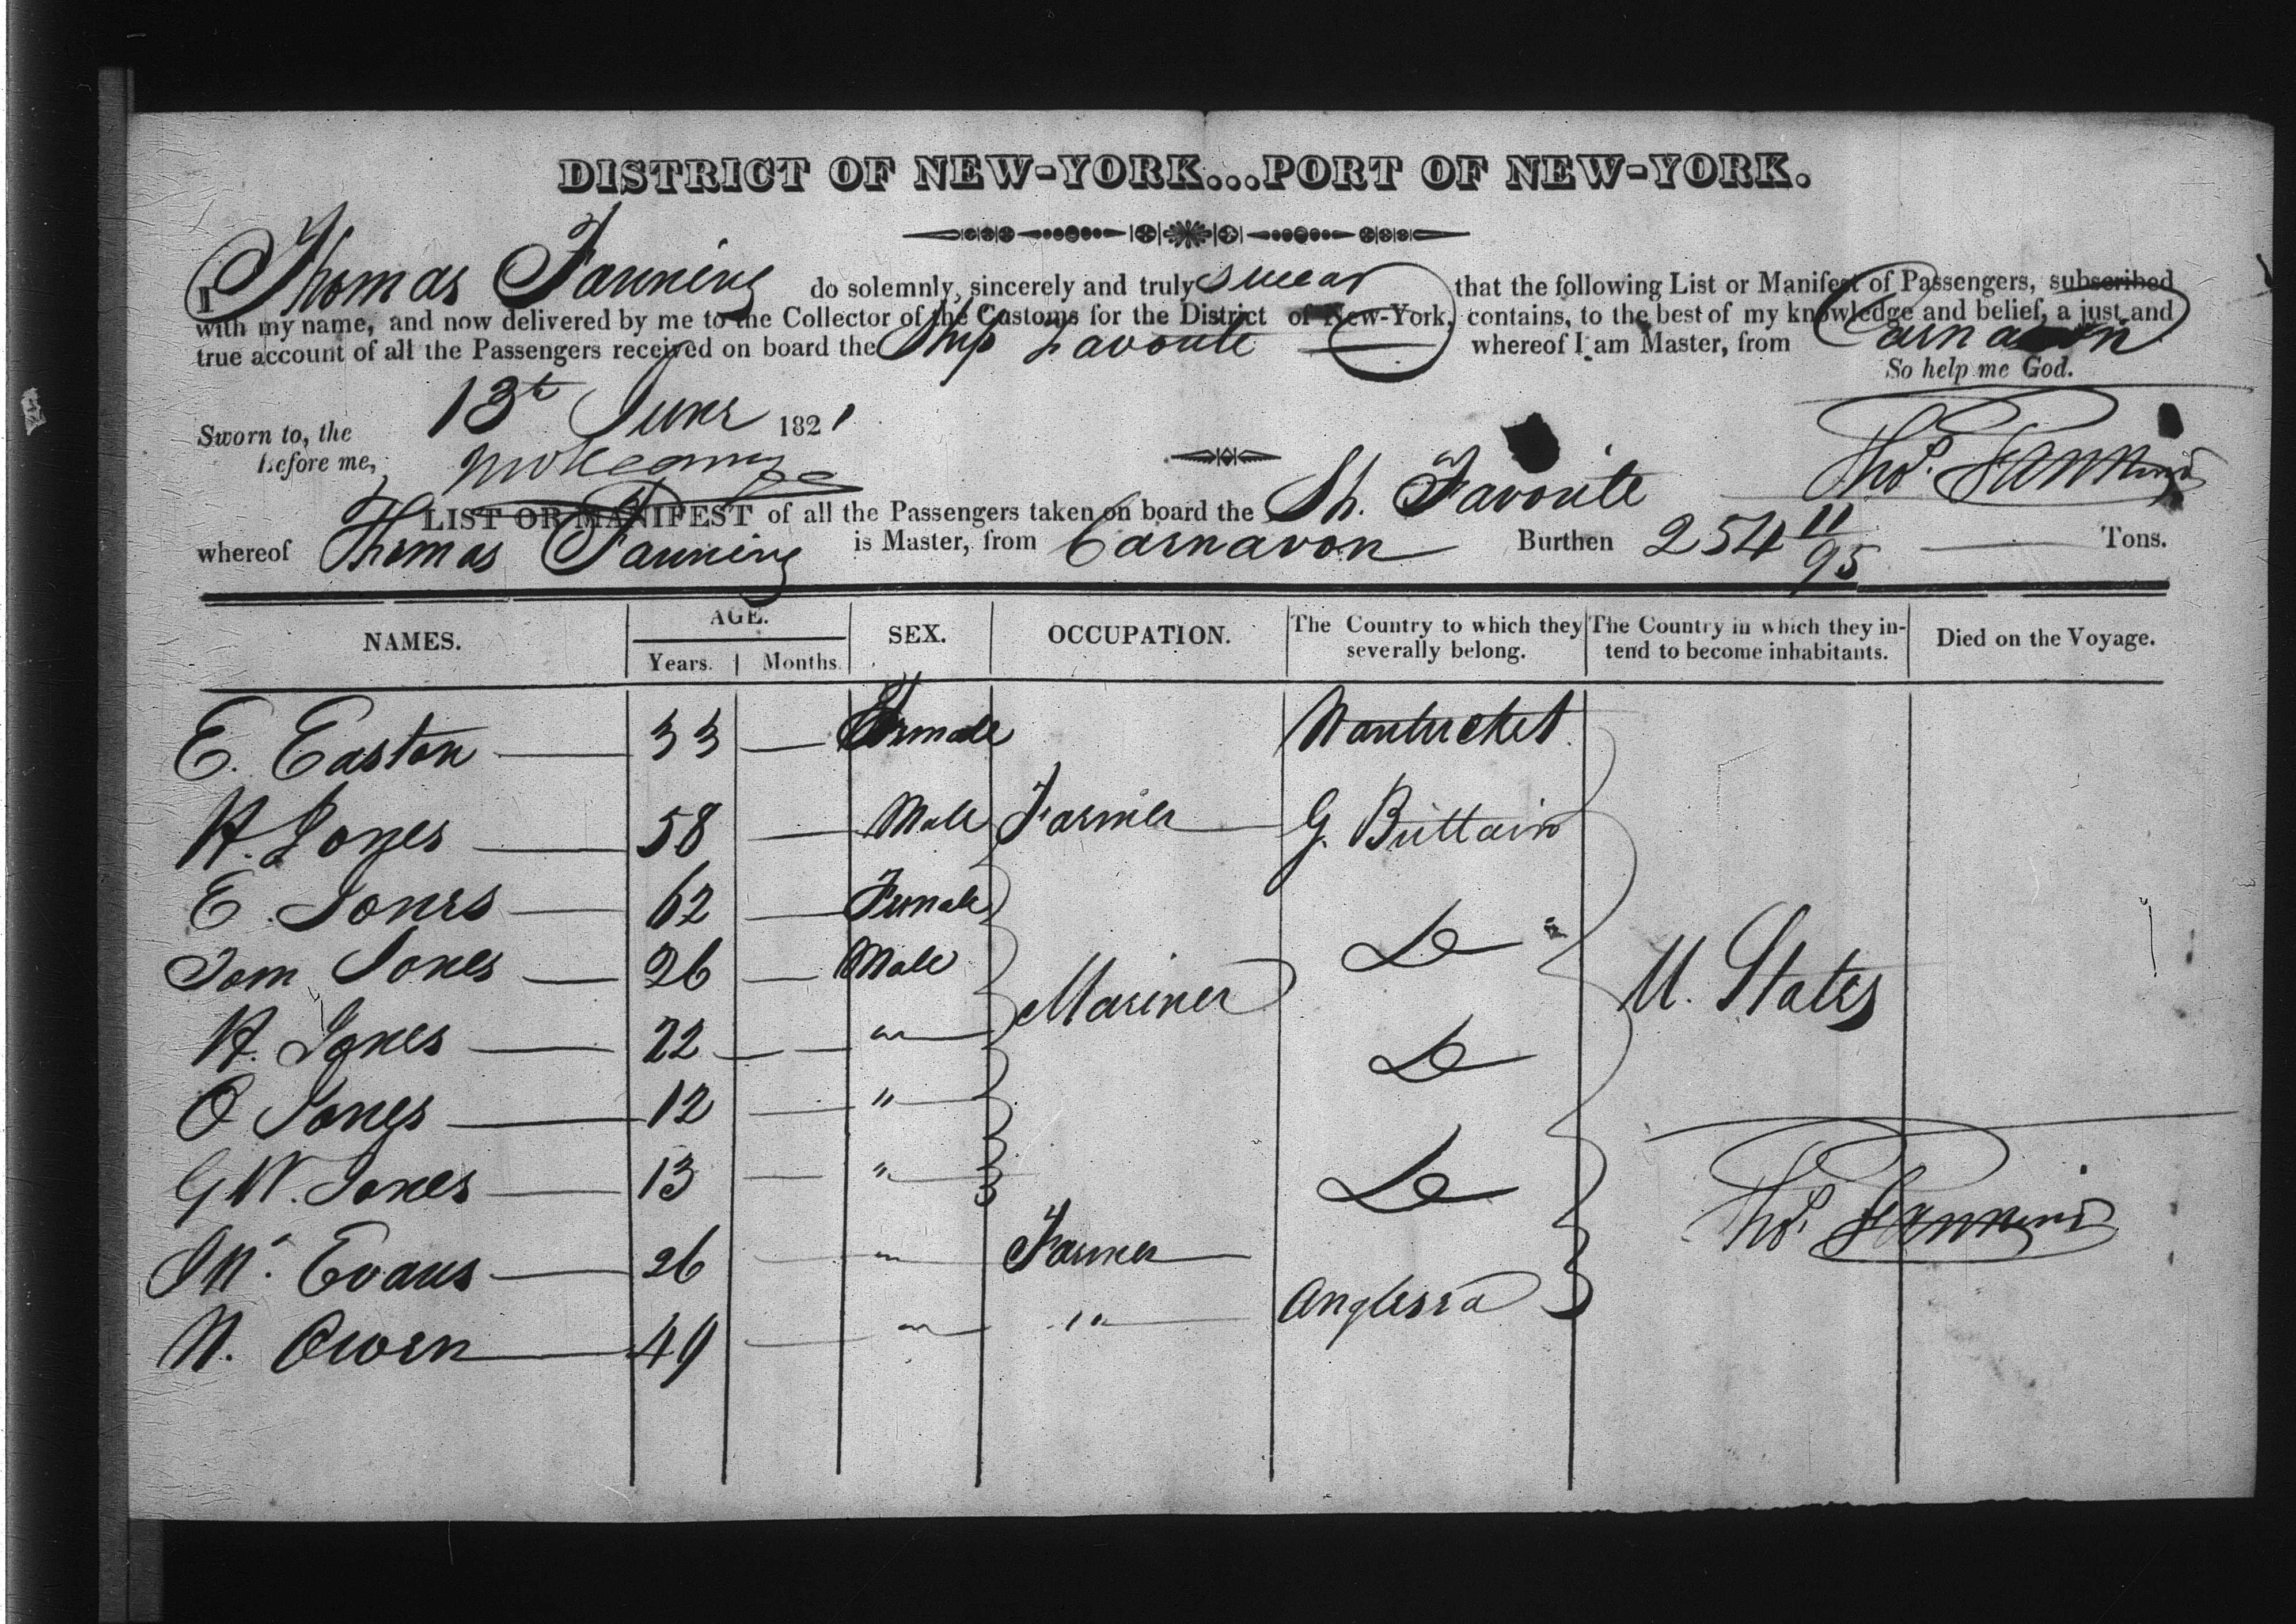 DISTRICT OF NEW-YORK...PORT OF NEW-YORK.
I Thomas Fanning do solemnly, sincerely and truly swear that the following List or Manifest of Passengers, subscribed
with my name, and now delivered by me to the Collector of the Customs for the District of New-York, contains, to the best of my knowledge and belief, a just and
true account of all the Passengers received on board the Ship Favorite whereof I am Master, from Carnavon
So help me God.
Sworn to, the 13t June 1821
before me,
Thos. Fanning
LIST OR MANIFEST of all the Passengers taken on board the Sh. Favorite
whereof Thomas Fanning is Master, from Carnavon Burthen 254 11/95 Tons.
NAMES. AGE. SEX. OCCUPATION. The Country to which they severally belong. The Country in which they intend to become inhabitants. Died on the Voyage.
Years. Months.
E. Easton 33 — Female Nantucket
H. Jones 58 — Male Farmer G. Brittain
E. Jones 62 — Female
Tom Jones 26 — Male Do
H. Jones 22 — " Mariner U. States
O Jones 12 — " Do
G W. Jones 13 — " Do
Evans 26 — " Farmer
N. Owen 49 — " " Anglesea
Thos. Fanning